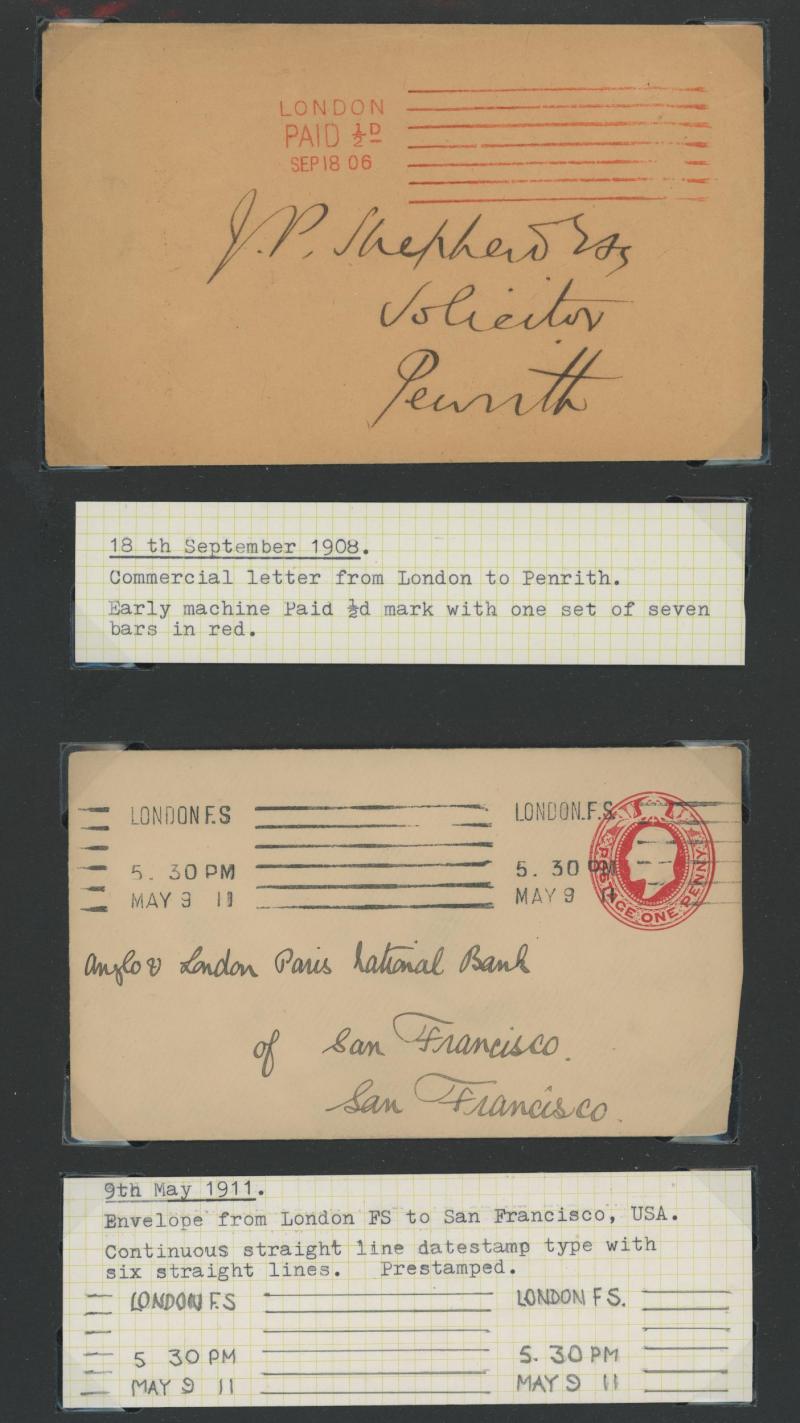 LONDON
PAID ½D
SEP 18 06
J. P. Shepherd Esq
Solicitor
Penrith
18 th September 1908.
Commercial letter from London to Penrith.
Early machine Paid ½d mark with one set of seven
bars in red.
LONDON F.S LONDON.F.S.
5. 30 PM 5. 30 PM
MAY 9 11 MAY 9 11
POSTAGE ONE PENNY
Anglo & London Paris National Bank
of San Francisco.
San Francisco.
9th May 1911.
Envelope from London FS to San Francisco, USA.
Continuous straight line datestamp type with
six straight lines. Prestamped.
LONDON F.S LONDON F S.
5 30 PM 5. 30 PM
MAY 9 11 MAY 9 11